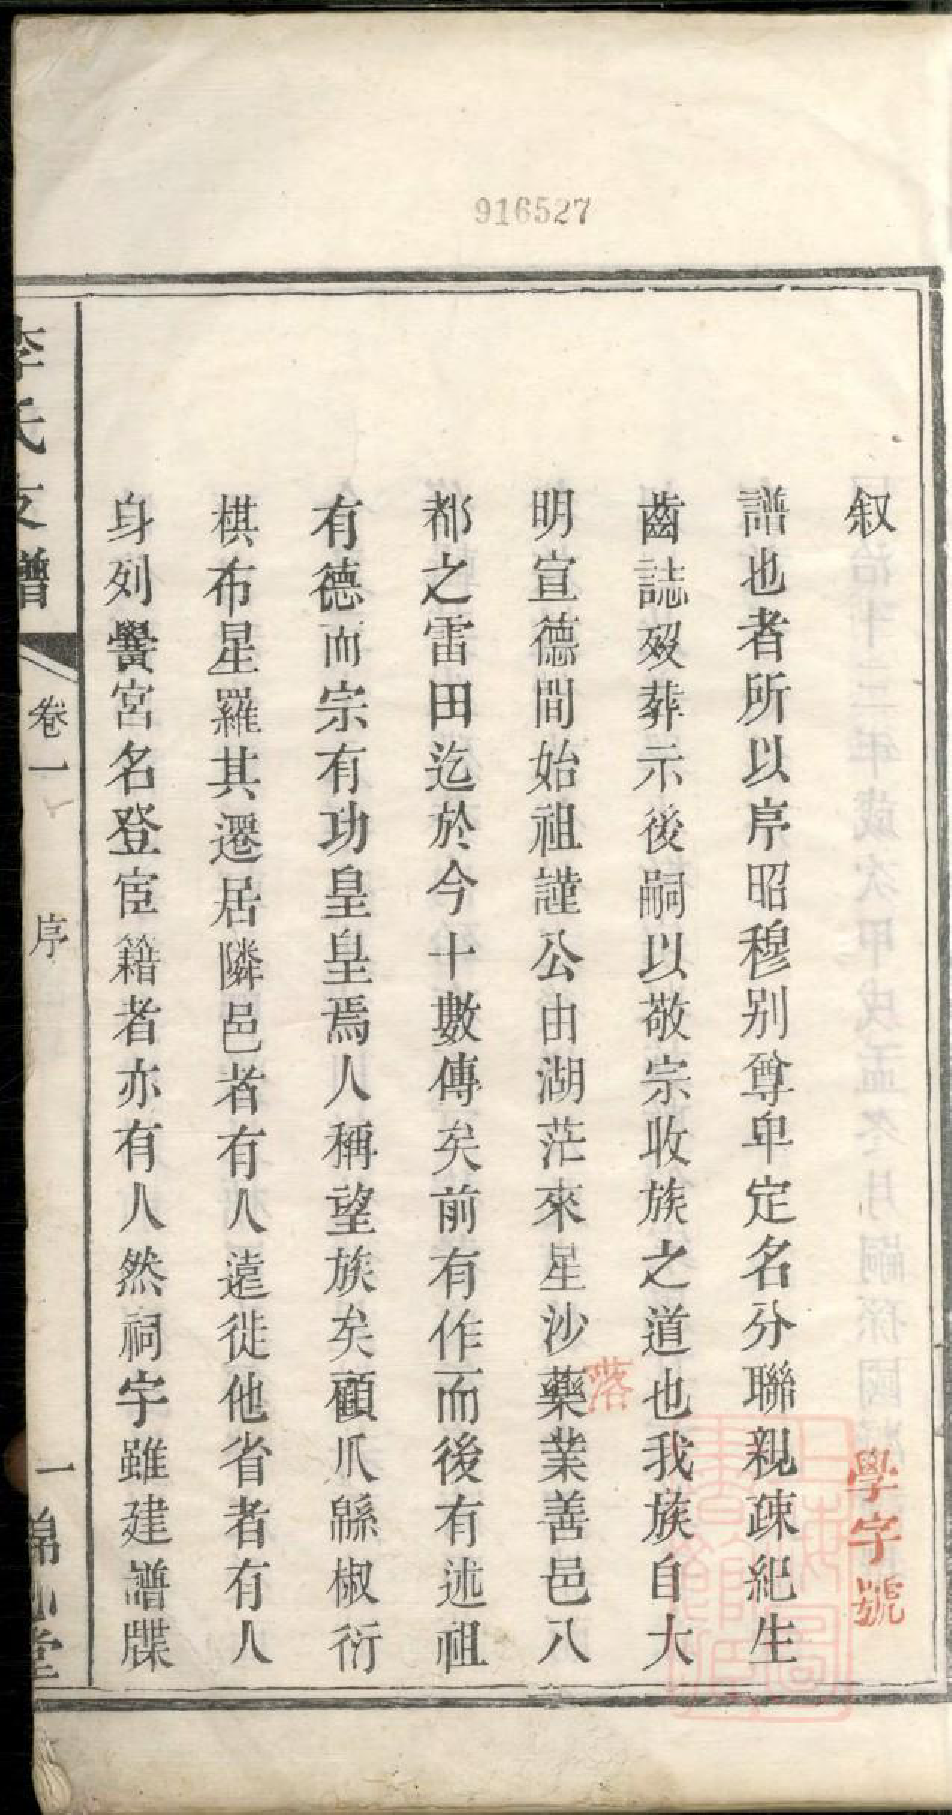 916527
叙
學字號
譜也者所以序昭穆别尊卑定名分聯親疎紀生
齒誌歿葬示後嗣以敬宗收族之道也我族自大
落
明宣德間始祖謹公由湖茫來星沙藥業善邑八
都之雷田迄於今十數傳矣前有作而後有述祖
有德而宗有功皇皇焉人稱望族矣顧爪緜椒衍
棋布星羅其遷居隣邑者有人遠徙他省者有人
身列黌宮名登宦籍者亦有人然祠宇雖建譜牒
李氏支譜
卷一
序
一
堂